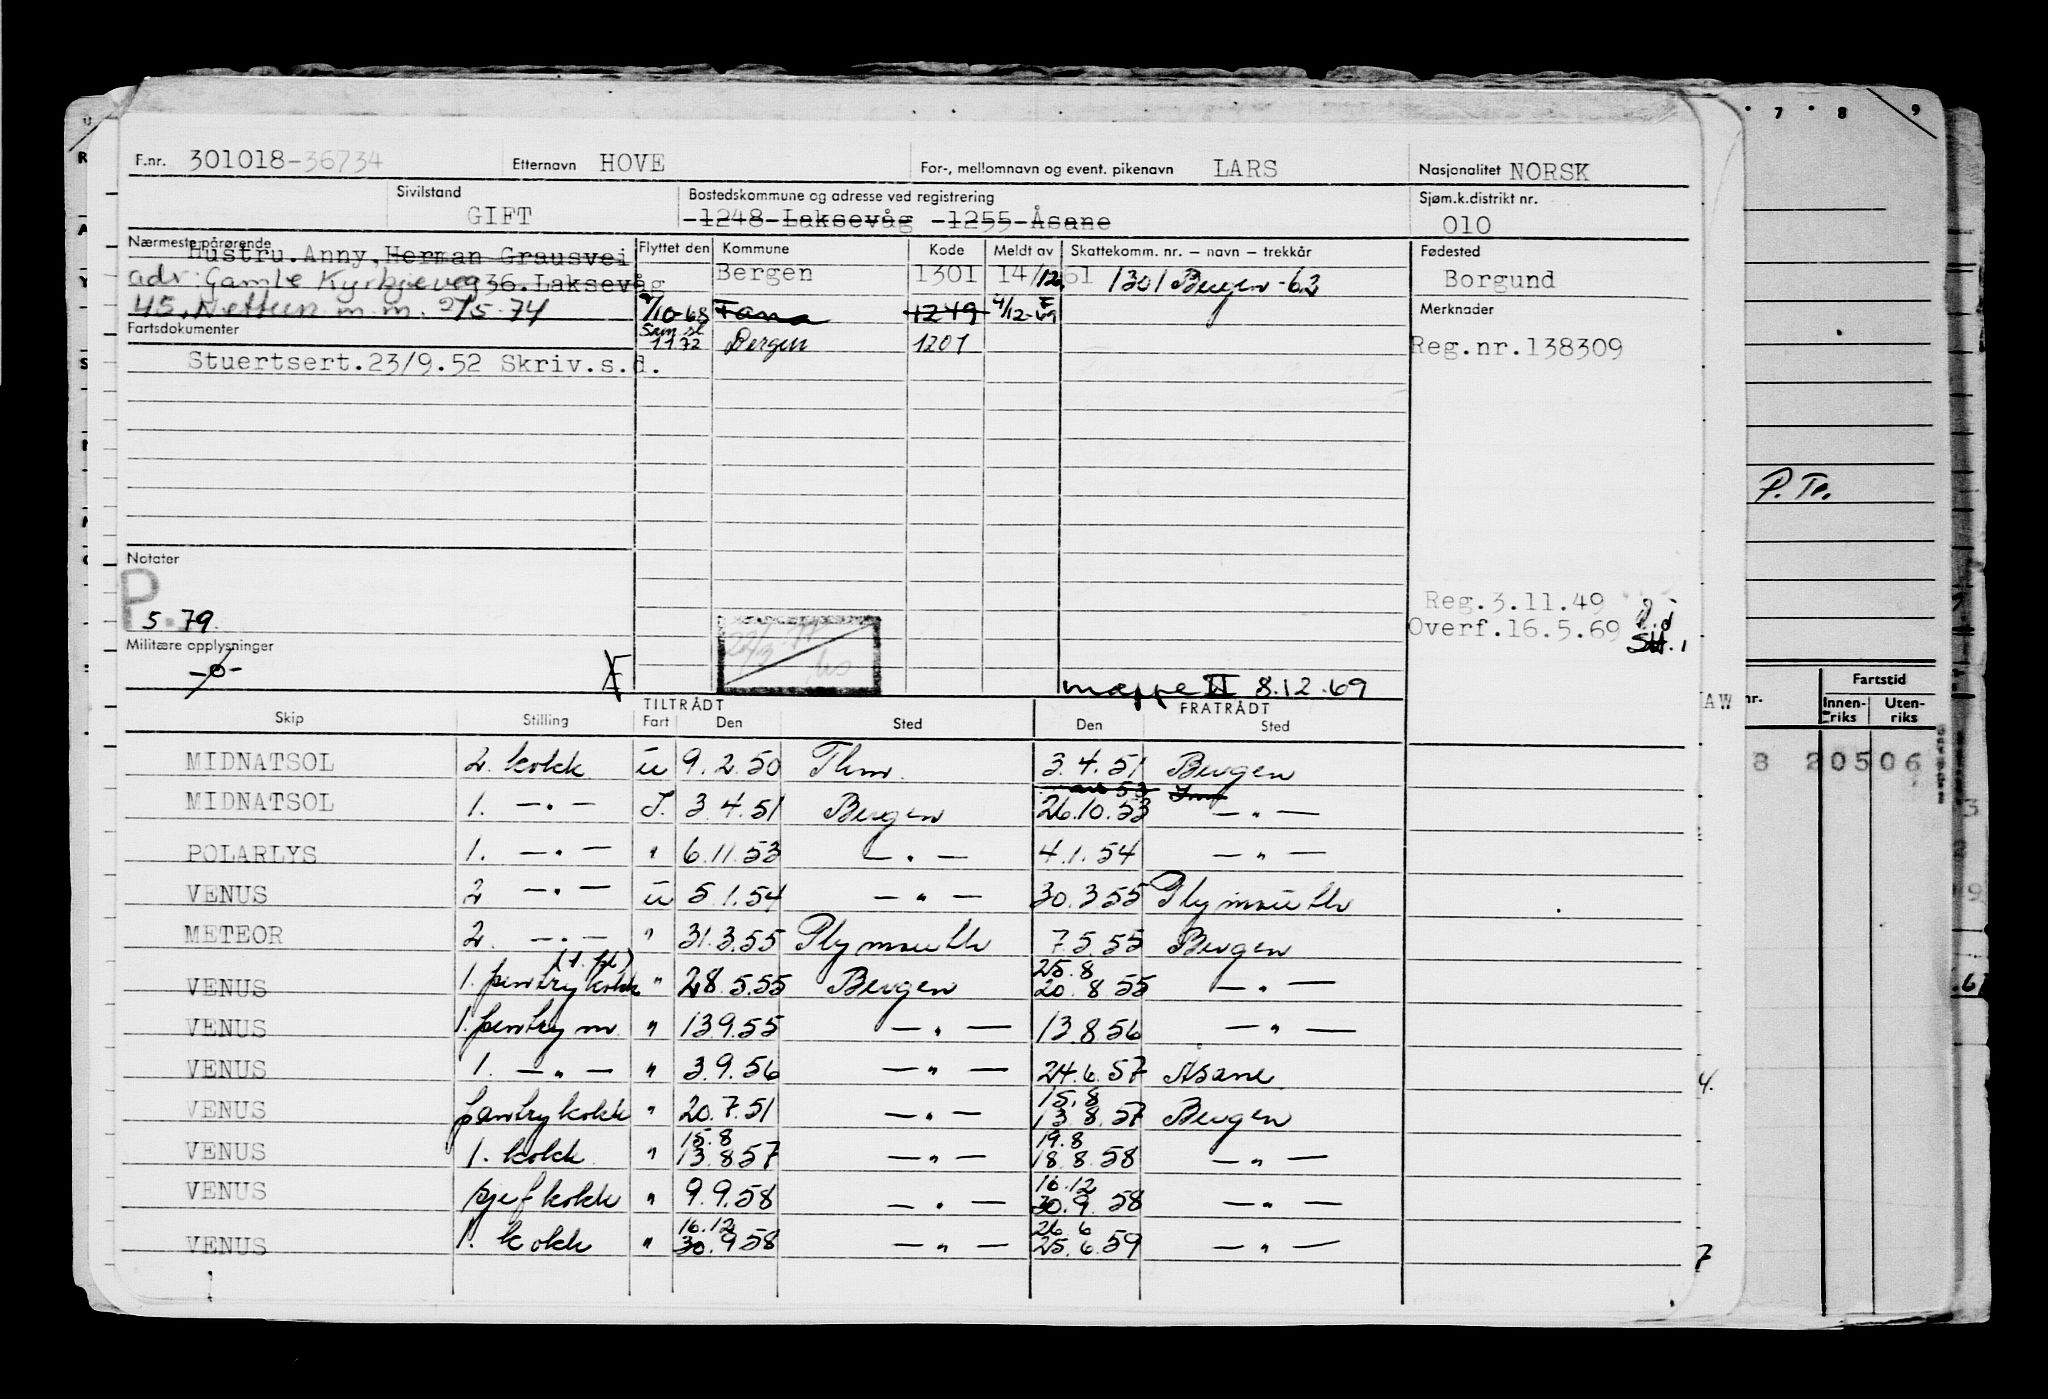 F.nr. 301018-36734 Etternavn HOVE For-, mellomnavn og event. pikenavn LARS Nasjonalitet NORSK
Sivilstand GIFT Bostedskommune og adresse ved registrering 1248 Laksevåg 1255 Åsane Sjøm.k.distrikt nr. 010
Nærmeste pårørende Flyttet den Kommune Kode Meldt av Skattekomm. nr. – navn – trekkår Fødested
Hustru. Anny, Herman Grausvei
36. Laksevåg Bergen 1301 14/12 61 1301 Bergen -63 Borgund
adr: Gamle Kyrkjeveg
45, Nettun m.m. 2/5-74 /10-68 Fana 1249 4/12-69 Merknader
Fartsdokumenter Sam.sl 1172 Bergen 1201 Reg.nr.138309
Stuertsert.23/9.52 Skriv.s.d.
P. Tr.
Notater
P 5.79. Reg.3.11.49
Overf.16.5.69
Militære opplysninger
mappe II 8.12.69
TILTRÅDT FRATRÅDT
Skip Stilling Fart Den Sted Den Sted
MIDNATSOL 2. kokk u 9.2.50 Thm. 3.4.51 Bergen
MIDNATSOL 1. —"— I. 3.4.51 Bergen 26.10.53 —"—
POLARLYS 1. —"— " 6.11.53 —"— 4.1.54 —"—
VENUS 2 —"— u 5.1.54 —"— 30.3.55 Plymouth
METEOR 2. —"— " 31.3.55 Plymouth 7.5.55 Bergen
VENUS 1. pentrykokk " 28.5.55 Bergen 25.8 20.8.55 —"—
VENUS 1. pentry m. " 13.9.55 —"— 13.8.56 —"—
VENUS 1. —"— " 3.9.56 —"— 24.6.57 Åsane
VENUS pantrykokk " 20.7.51 —"— 15.8 13.8.57 Bergen
VENUS 1. kokk " 15.8 13.8.57 —"— 19.8 18.8.58 —"—
VENUS kjefkokk " 9.9.58 —"— 16.12 30.9.58 —"—
VENUS 1. kokk " 16.12 30.9.58 —"— 26.6 25.6.59 —"—
7 8 9
AW nr. Fartstid
Innen-riks Uten-riks
8 20506